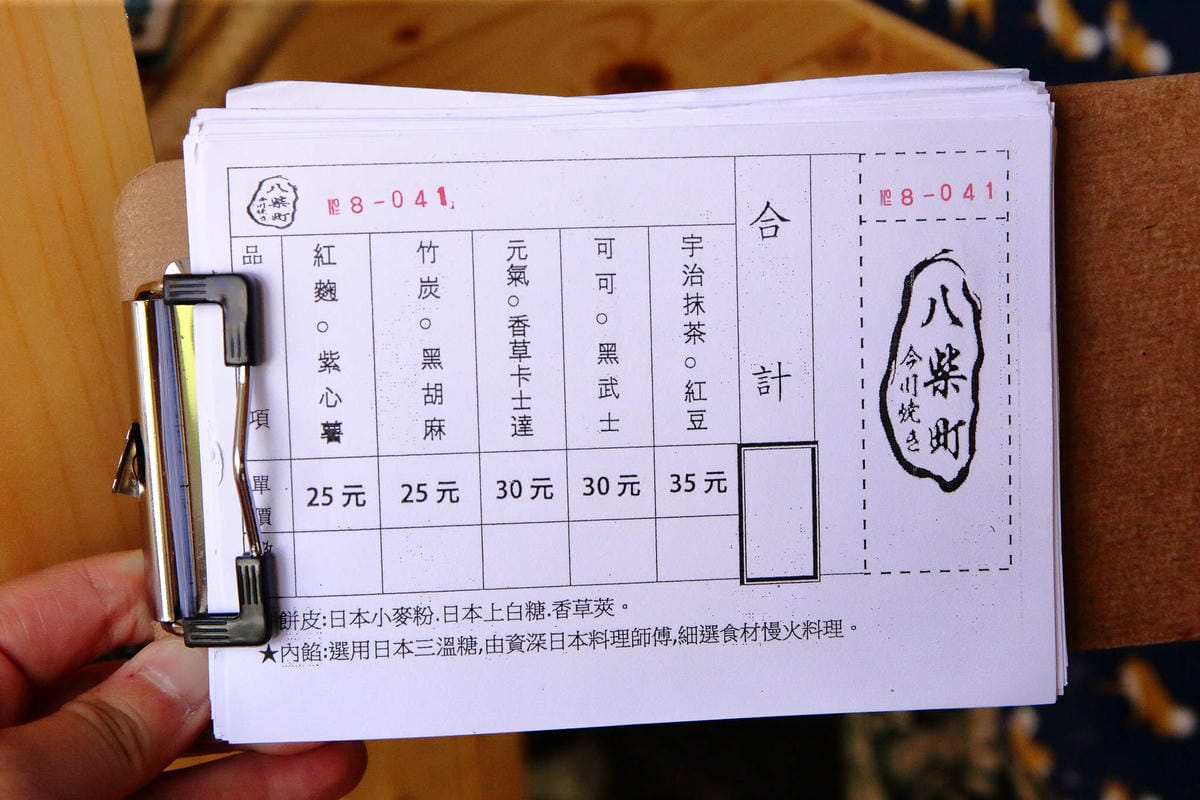 八柴町
今川焼き
№ 8-041
品項
紅麴。紫心薯
竹炭。黑胡麻
元氣。香草卡士達
可可。黑武士
宇治抹茶。紅豆
合計
單價
25元
25元
30元
30元
35元
№ 8-041
八柴町
今川焼き
餅皮:日本小麥粉.日本上白糖.香草莢。
★內餡:選用日本三溫糖,由資深日本料理師傅,細選食材慢火料理。